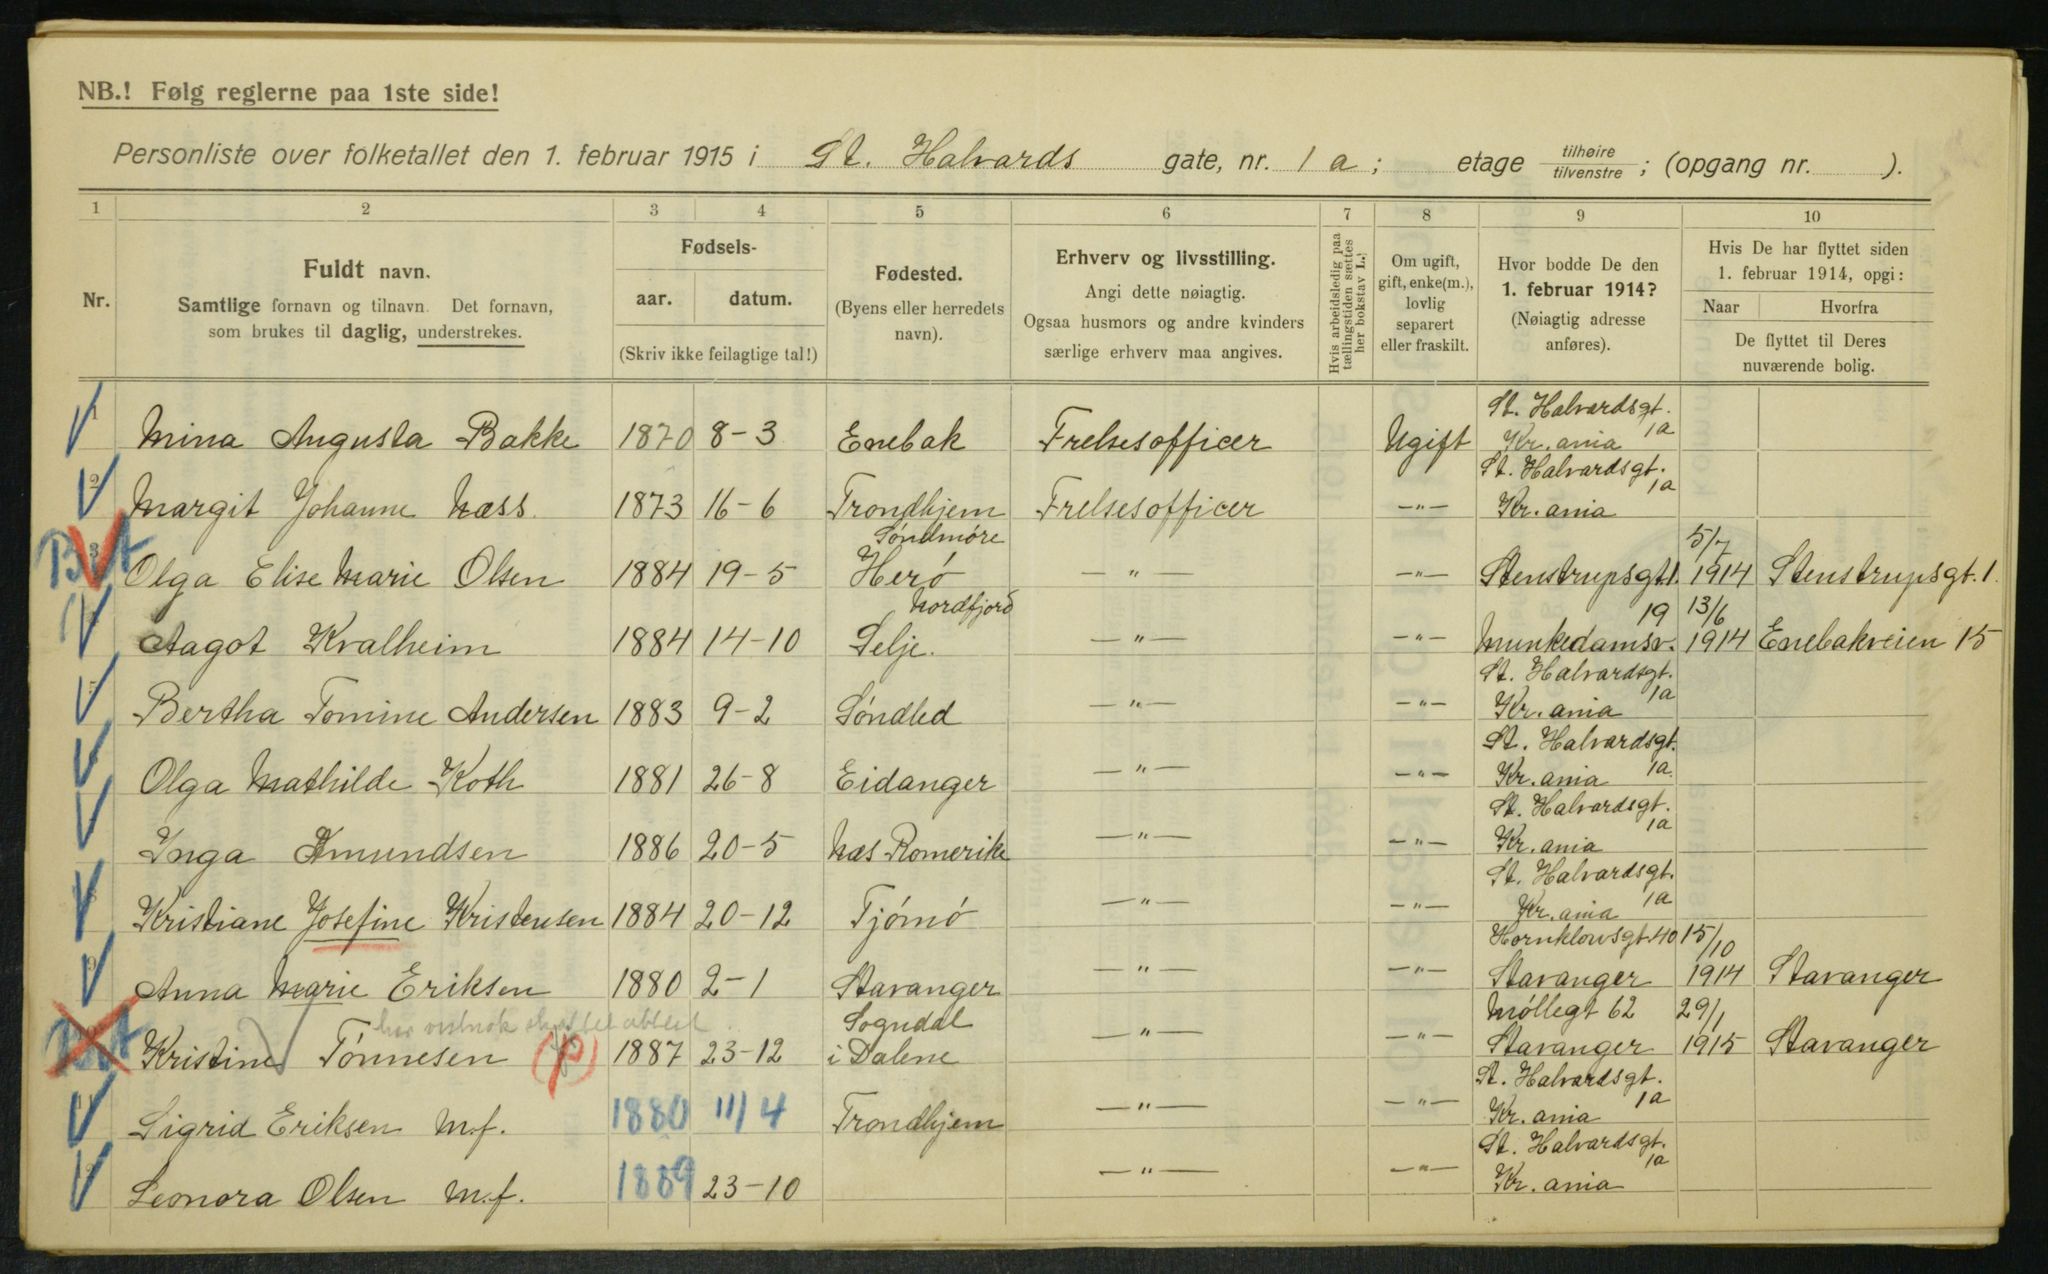 NB.! Følg reglerne paa 1ste side!
Personliste over folketallet den 1. februar 1915 i St. Halvards gate, nr. 1 a; etage tilhøire tilvenstre; (opgang nr. ).
1 2 3 4 5 6 7 8 9 10
Nr.
Fuldt navn.
Samtlige fornavn og tilnavn. Det fornavn,
som brukes til daglig, understrekes.
Fødsels-
aar. datum.
(Skriv ikke feilagtige tal!)
Fødested.
(Byens eller herredets
navn).
Erhverv og livsstilling.
Angi dette nøiagtig.
Ogsaa husmors og andre kvinders
særlige erhverv maa angives.
Hvis arbeidsledig paa
tællingstiden sættes
her bokstav L.
Om ugift,
gift, enke(m.),
lovlig
separert
eller fraskilt.
Hvor bodde De den
1. februar 1914?
(Nøiagtig adresse
anføres).
Hvis De har flyttet siden
1. februar 1914, opgi:
Naar Hvorfra
De flyttet til Deres
nuværende bolig.
St. Halvardsgt. 1a
1 Mina Augusta Bakke 1870 8-3 Enebak Frelsesofficer Ugift Kr.ania
St. Halvardsgt. 1a
2 Margit Johanne Næss 1873 16-6 Trondhjem Frelsesofficer -"- Kr.ania
Søndmøre 5/7
3 Olga Elise Marie Olsen 1884 19-5 Herø -"- -"- Stenstrupsgt 1. 1914 Stenstrupsgt. 1.
Nordfjord 19 13/6
Aagot Kvalheim 1884 14-10 Selje. -"- -"- Munkedamsv. 1914 Enebakveien 15
St. Halvardsgt. 1a
5 Bertha Tomine Andersen 1883 9-2 Søndled -"- -"- Kr.ania
St. Halvardsgt. 1a.
Olga Mathilde Koth 1881 26-8 Eidanger -"- -"- Kr.ania
St. Halvardsgt. 1a
Inga Amundsen 1886 20-5 Næs Romerike -"- -"- Kr.ania
St. Halvardsgt. 1a
8 Kristiane Josefine Kristensen 1884 20-12 Tjømø -"- -"- Kr.ania
Hornklovsgt 40 15/10
9 Anna Marie Eriksen 1880 2-1 Stavanger -"- -"- Stavanger 1914 Stavanger
Sogndal Møllegt 62 29/1
Kristine Tønnesen (f) 1887 23-12 i Dalene -"- -"- Stavanger 1915 Stavanger
St. Halvardsgt. 1a
Sigrid Eriksen m.f. 1880 11/4 Trondhjem -"- -"- Kr.ania
St. Halvardsgt. 1a
Leonora Olsen m.f. 1889 23-10 -"- -"- Kr.ania